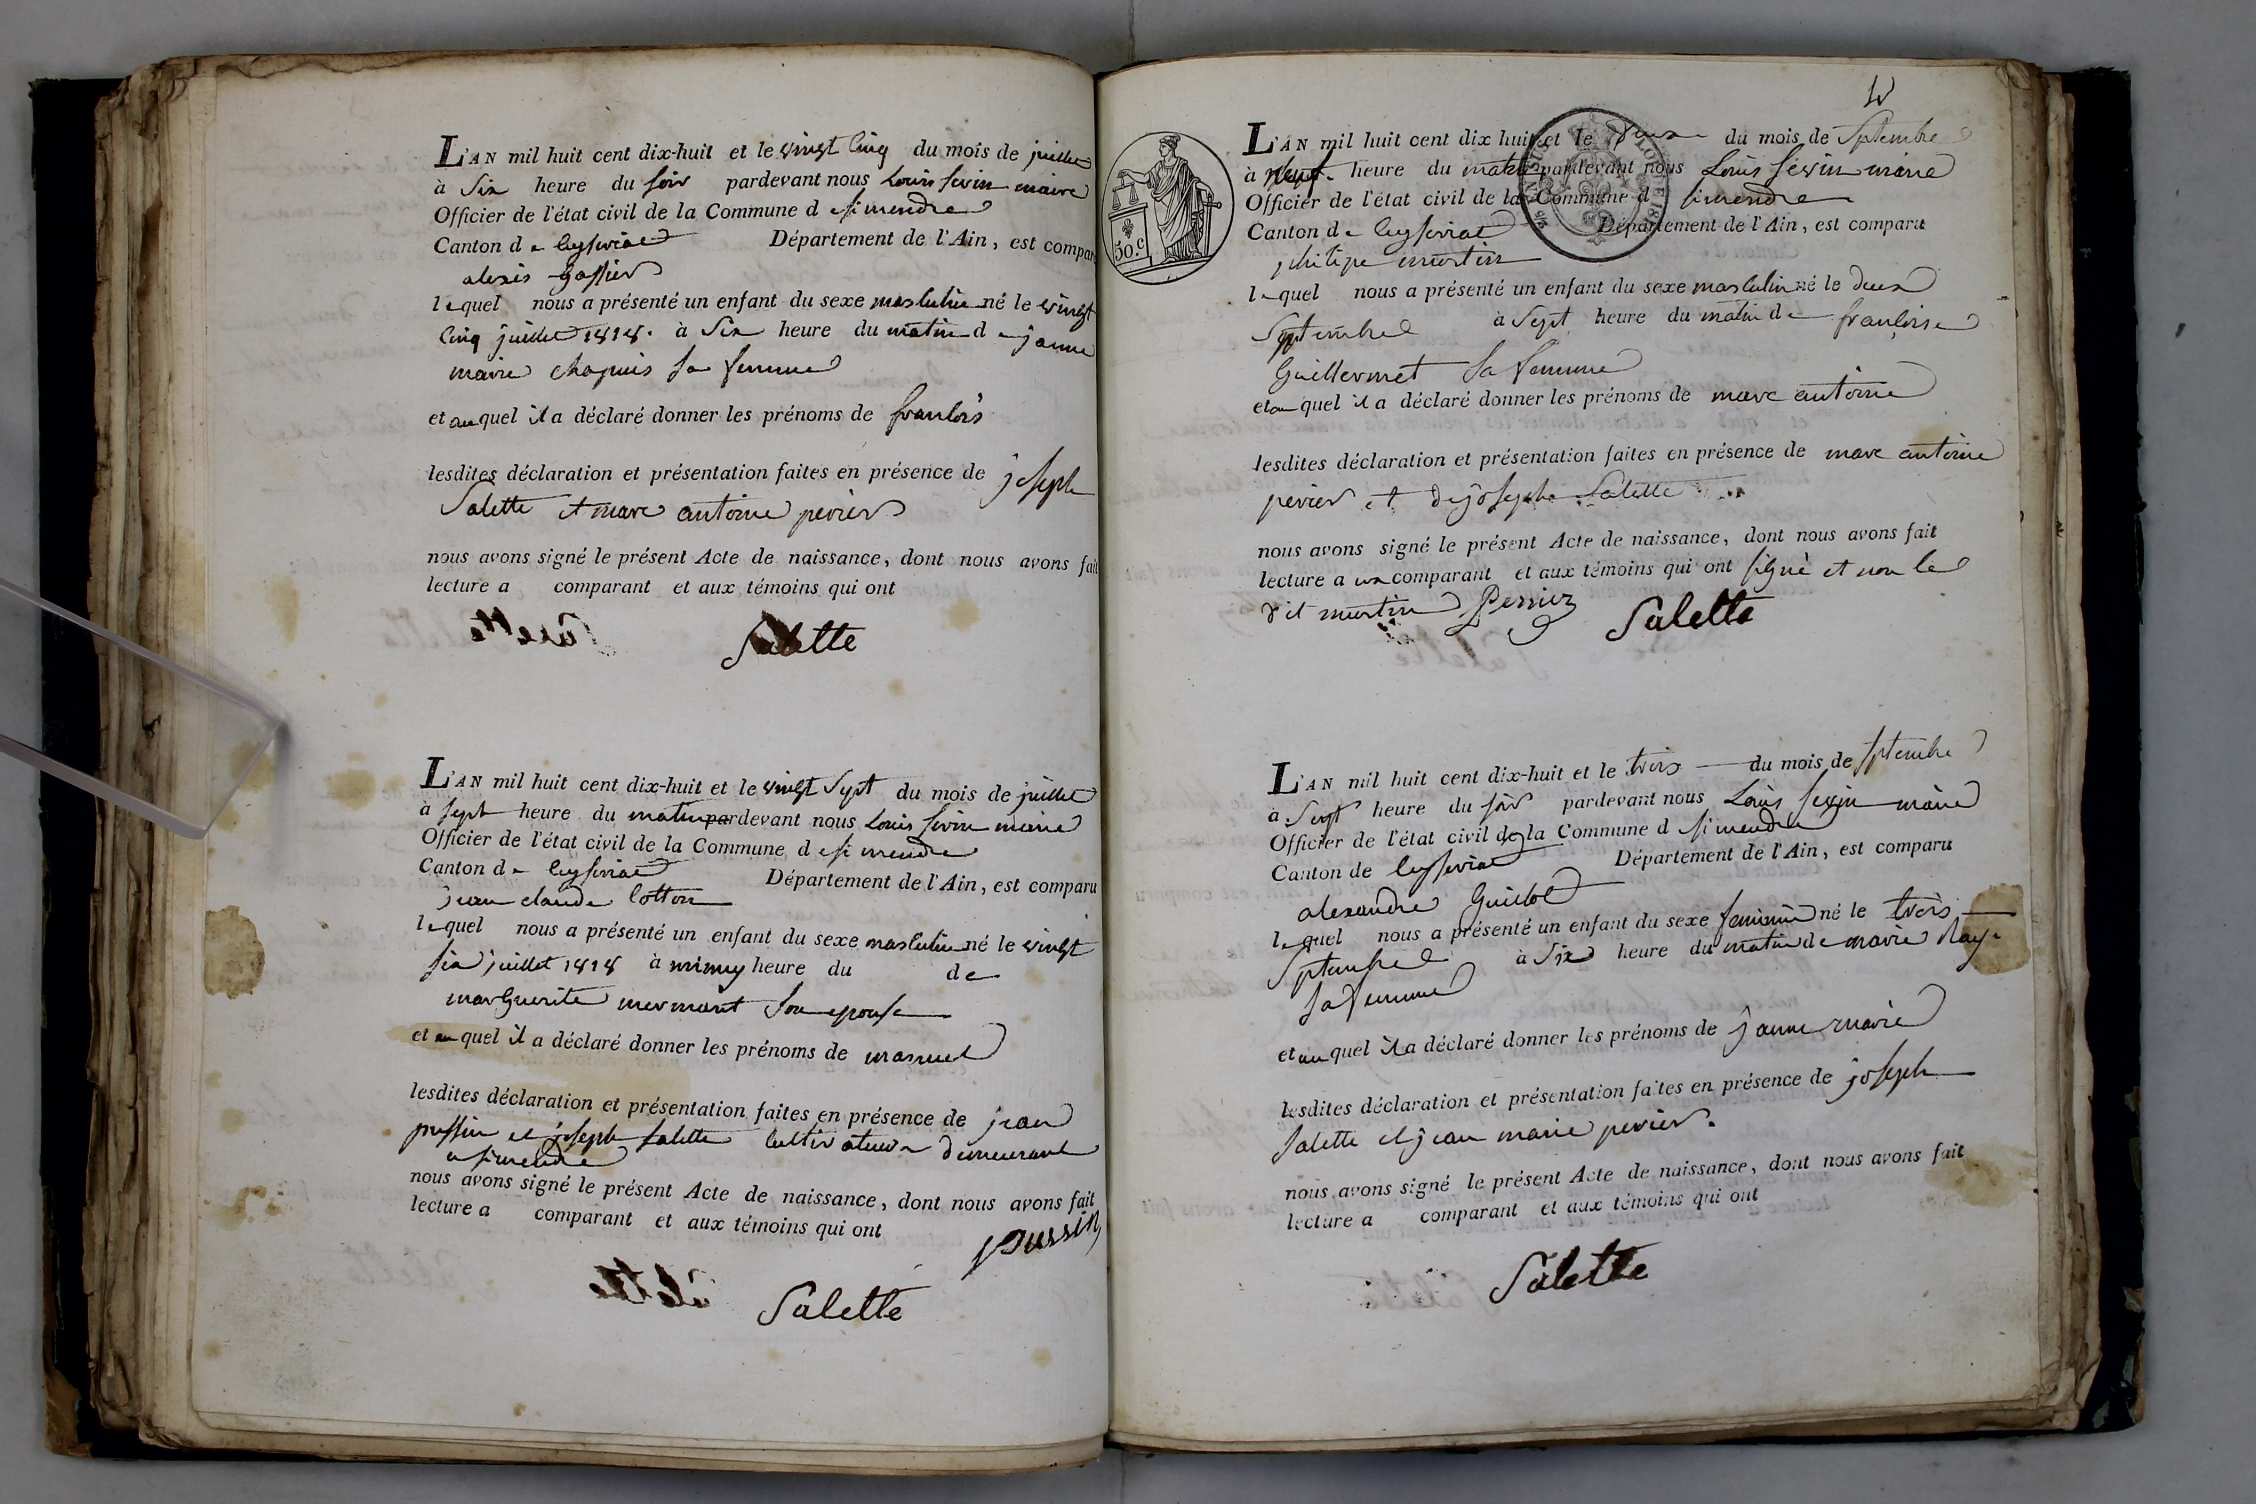 L'AN mil huit cent dix-huit et le vingt cinq du mois de juillet
à six heure du soir pardevant nous Louis sevin maire
Officier de l'état civil de la Commune d e simendre
Canton d e Ceyseriat Département de l'Ain, est compar
alexis
lequel nous a présenté un enfant du sexe masculin né le vingt
cinq juillet 1818. à six heure du matin d e janne
marie chapuis sa femme
et au quel il a déclaré donner les prénoms de francois
lesdites déclaration et présentation faites en présence de joseph
Salette et marc antoine perier
nous avons signé le présent Acte de naissance, dont nous avons fait
lecture a comparant et aux témoins qui ont
Salette
L'AN mil huit cent dix-huit et le vingt sept du mois de juillet
à sept heure du matin pardevant nous Louis sevin maire
Officier de l'état civil de la Commune d e simendre
Canton d e Ceyseriat Département de l'Ain, est comparu
jean claude cotton
lequel nous a présenté un enfant du sexe masculin né le vingt
six juillet 1818 à minuy heure du de
marguerite mermant son epouse
et au quel il a déclaré donner les prénoms de manuel
lesdites déclaration et présentation faites en présence de jean
pussin et joseph salette cultivateur demeurant
a simendre
nous avons signé le présent Acte de naissance, dont nous avons fait
lecture a comparant et aux témoins qui ont
pussin
Salette
L'AN mil huit cent dix huit et le deux du mois de septembre
à heure du matin pardevant nous Louis sevin maire
Officier de l'état civil de la Commune d simendre
Canton d e Ceyseriat Département de l'Ain, est comparu
philipe martin
50.c
lequel nous a présenté un enfant du sexe masculin né le deux
septembre à sept heure du matin d e françoise
Guillermet sa femme
et au quel il a déclaré donner les prénoms de marc antoine
lesdites déclaration et présentation faites en présence de marc antoine
perier et de joseph Salette
nous avons signé le présent Acte de naissance, dont nous avons fait
lecture a comparant et aux témoins qui ont signé et non le
dit martin Perrier
Salette
L'AN mil huit cent dix-huit et le trois du mois de septembre
à sept heure du soir pardevant nous Louis sevin maire
Officier de l'état civil de la Commune d simendre
Canton de Ceyseriat Département de l'Ain, est comparu
alexandre Guillot
lequel nous a présenté un enfant du sexe feminin né le trois
septembre à six heure du matin de marie
sa femme
et au quel il a déclaré donner les prénoms de janne marie
lesdites déclaration et présentation faites en présence de joseph
Salette et jean marie perier.
nous avons signé le présent Acte de naissance, dont nous avons fait
lecture a comparant et aux témoins qui ont
Salette